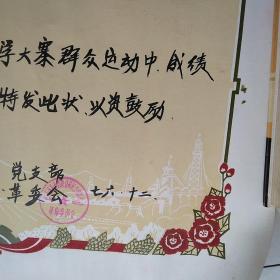 学大寨群众运动中,成绩
特发此状.以资鼓励.
党支部
革委会 七六·十二